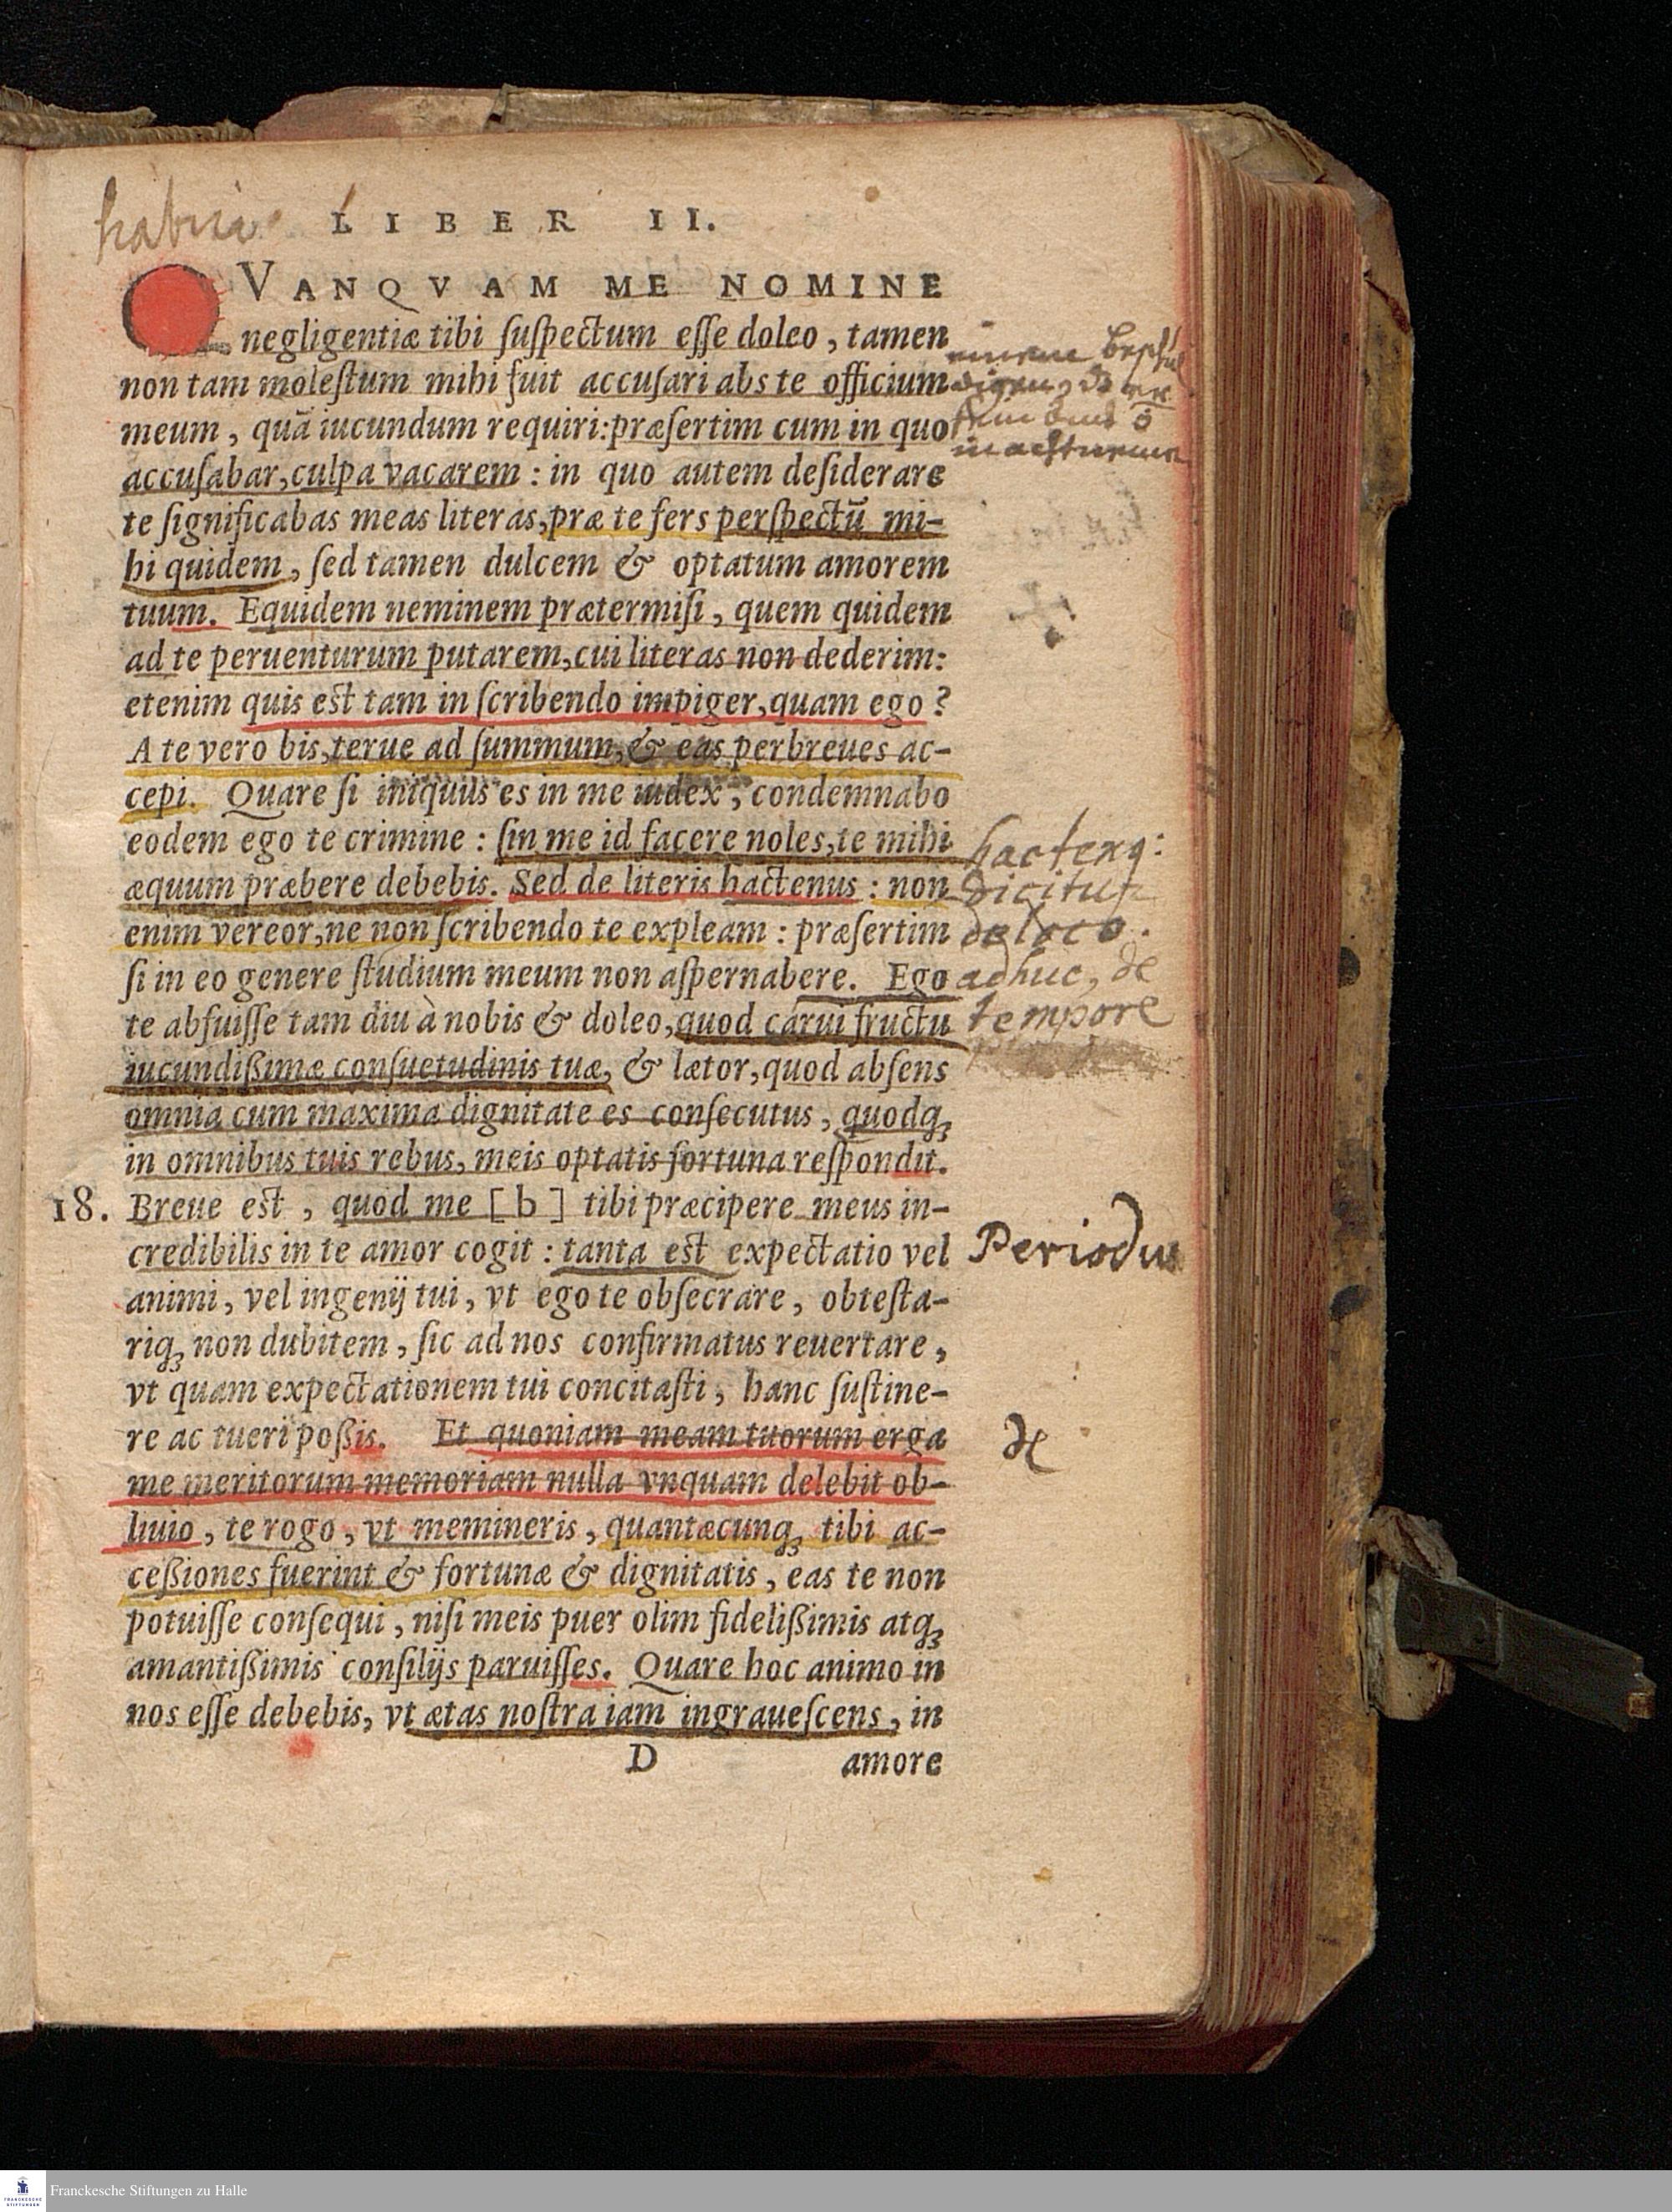 LIBER II.
QVANQVAM ME NOMINE
negligentiæ tibi ſuſpectum eſſe doleo, tamen
non tam moleſtum mihi fuit accuſari abs te officium
meum, quā iucundum requiri: præſertim cum in quo
accuſabar, culpa vacarem: in quo autem deſiderare
te ſignificabas meas literas, præ te fers perſpectū mi-
hi quidem, ſed tamen dulcem & optatum amorem
tuum. Equidem neminem prætermiſi, quem quidem
ad te peruenturum putarem, cui literas non dederim:
etenim quis est tam in ſcribendo impiger, quam ego?
A te vero bis, terue ad ſummum, & eas perbreues ac-
cepi. Quare ſi iniquus es in me iudex, condemnabo
eodem ego te crimine: ſin me id facere noles, te mihi
æquum præbere debebis. Sed de literis hactenus: non
enim vereor, ne non ſcribendo te expleam: præſertim
ſi in eo genere ſtudium meum non aſpernabere. Ego
te abfuiſſe tam diu à nobis & doleo, quod carui fructu
iucundißimæ conſuetudinis tuæ, & lætor, quod abſens
omnia cum maxima dignitate es conſecutus, quodq;
in omnibus tuis rebus, meis optatis fortuna reſpondit.
hactenq:
dicitur
de loco.
adhuc, de
tempore
18. Breue est, quod me [b] tibi præcipere meus in-
credibilis in te amor cogit: tanta est expectatio vel
animi, vel ingenij tui, vt ego te obſecrare, obteſta-
riq; non dubitem, ſic ad nos confirmatus reuertare,
vt quam expectationem tui concitaſti, hanc ſuſtine-
re ac tueri poßis. Et quoniam meam tuorum erga
me meritorum memoriam nulla vnquam delebit ob-
liuio, te rogo, vt memineris, quantæcunq; tibi ac-
ceßiones fuerint & fortunæ & dignitatis, eas te non
potuiſſe conſequi, niſi meis puer olim fidelißimis atq;
amantißimis conſilijs paruiſſes. Quare hoc animo in
nos eſſe debebis, vt ætas noſtra iam ingraueſcens, in
Periodus
D amore
Franckesche Stiftungen zu Halle